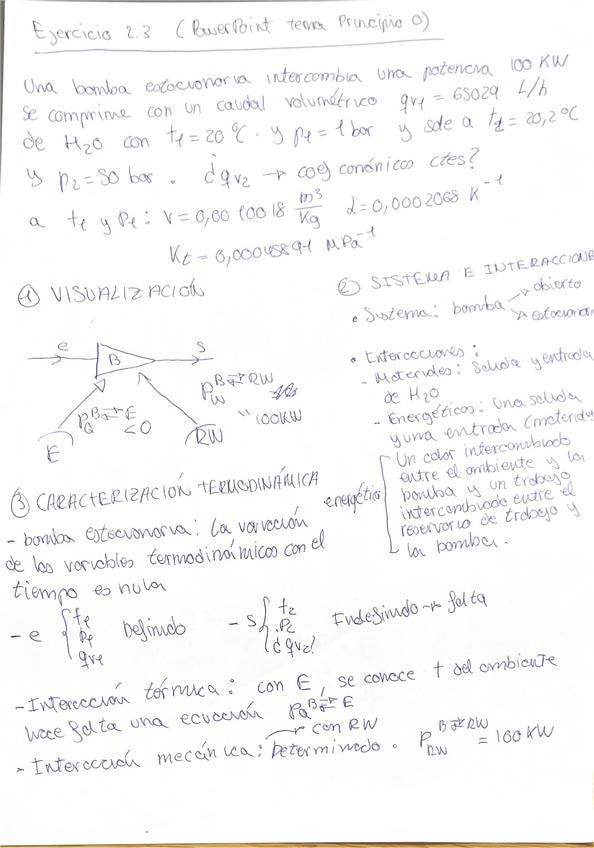 Ejercicio 2.3 (PowerPoint tema Principio 0)
Una bomba estacionaria intercambia una potencia 100 KW
se comprime con un caudal volumétrico qv1 = 65029 L/h
de H2O con t1 = 20ºC. y p1 = 1 bar y sale a t2 = 20,2ºC
y p2 = 50 bar. ¿qv2 → coef canónicos ctes?
a t1 y p1: v = 0,0010018 m³/Kg α = 0,0002068 K⁻¹
Kt = 0,00045891 MPa⁻¹
① VISUALIZACIÓN
e
B
s
PQ B⇄E <0
E
PW B⇄RW
"100KW
RW
② SISTEMA E INTERACCIONE
• Sistema: bomba → abierto
→ estacionar
• Interacciones:
- Materiales: Salida y entrada
de H2O
- Energéticas: Una salida
y una entrada (material
energético
Un calor intercambiado
entre el ambiente y la
bomba y un trabajo
intercambiado entre el
reservorio de trabajo y
la bomba.
③ CARACTERIZACIÓN TERMODINÁMICA
- bomba estacionaria: La variación
de las variables termodinámicas con el
tiempo es nula
- e { t1 p1 qv1 Definido - s { t2 p2 ¿qv2? Indefinido → falta
- Interacción térmica: con E, se conoce t del ambiente
hace falta una ecuación PQ B⇄E
con RW
- Interacción mecánica: Determinado. PRW B⇄RW = 100 KW